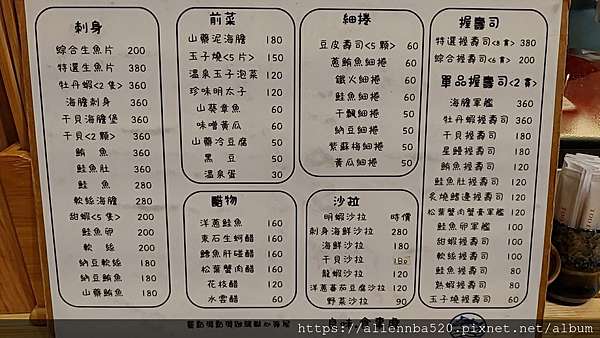 刺身
綜合生魚片 200
特選生魚片 380
牡丹蝦<2隻> 360
海膽刺身 360
干貝海膽堡 360
干貝<2顆> 360
鮪魚 360
鮭魚肚 360
鮭魚 200
軟絲海膽 240
甜蝦<5隻> 200
鮭魚卵 200
軟絲 200
納豆軟絲 180
納豆鮪魚 180
山藥鮪魚 180
前菜
山藥泥海膽 180
玉子燒<5片> 150
溫泉玉子泡菜 120
珍味明太子 120
山葵章魚 60
味噌黃瓜 60
山藥冷豆腐 50
黑豆 50
溫泉蛋 30
醋物
洋蔥鮭魚 160
東石生蚵醋 160
鱈魚肝碰醋 160
松葉蟹肉醋 160
花枝醋 120
水雲醋 60
細捲
豆皮壽司<5顆> 60
蔥鮪魚細捲 60
鐵火細捲 60
鮭魚細捲 60
干瓢細捲 50
納豆細捲 50
紫蘇梅細捲 50
黃瓜細捲 50
沙拉
明蝦沙拉 時價
刺身海鮮沙拉 280
海鮮沙拉 180
干貝沙拉 180
龍蝦沙拉 120
洋蔥蕃茄豆腐沙拉 120
野菜沙拉 90
握壽司
特選握壽司<8貫> 380
綜合握壽司<6貫> 200
單品握壽司<2貫>
海膽軍艦 360
牡丹蝦握壽司 360
干貝握壽司 180
星鰻握壽司 180
鮪魚握壽司 120
鮭魚肚握壽司 120
炙燒鰭邊握壽司 120
松葉蟹肉蟹膏軍艦 120
鮭魚卵軍艦 120
甜蝦握壽司 100
軟絲握壽司 100
鮭魚握壽司 80
熟蝦握壽司 80
玉子燒握壽司 60
https://aliennba520.pixnet.net/album